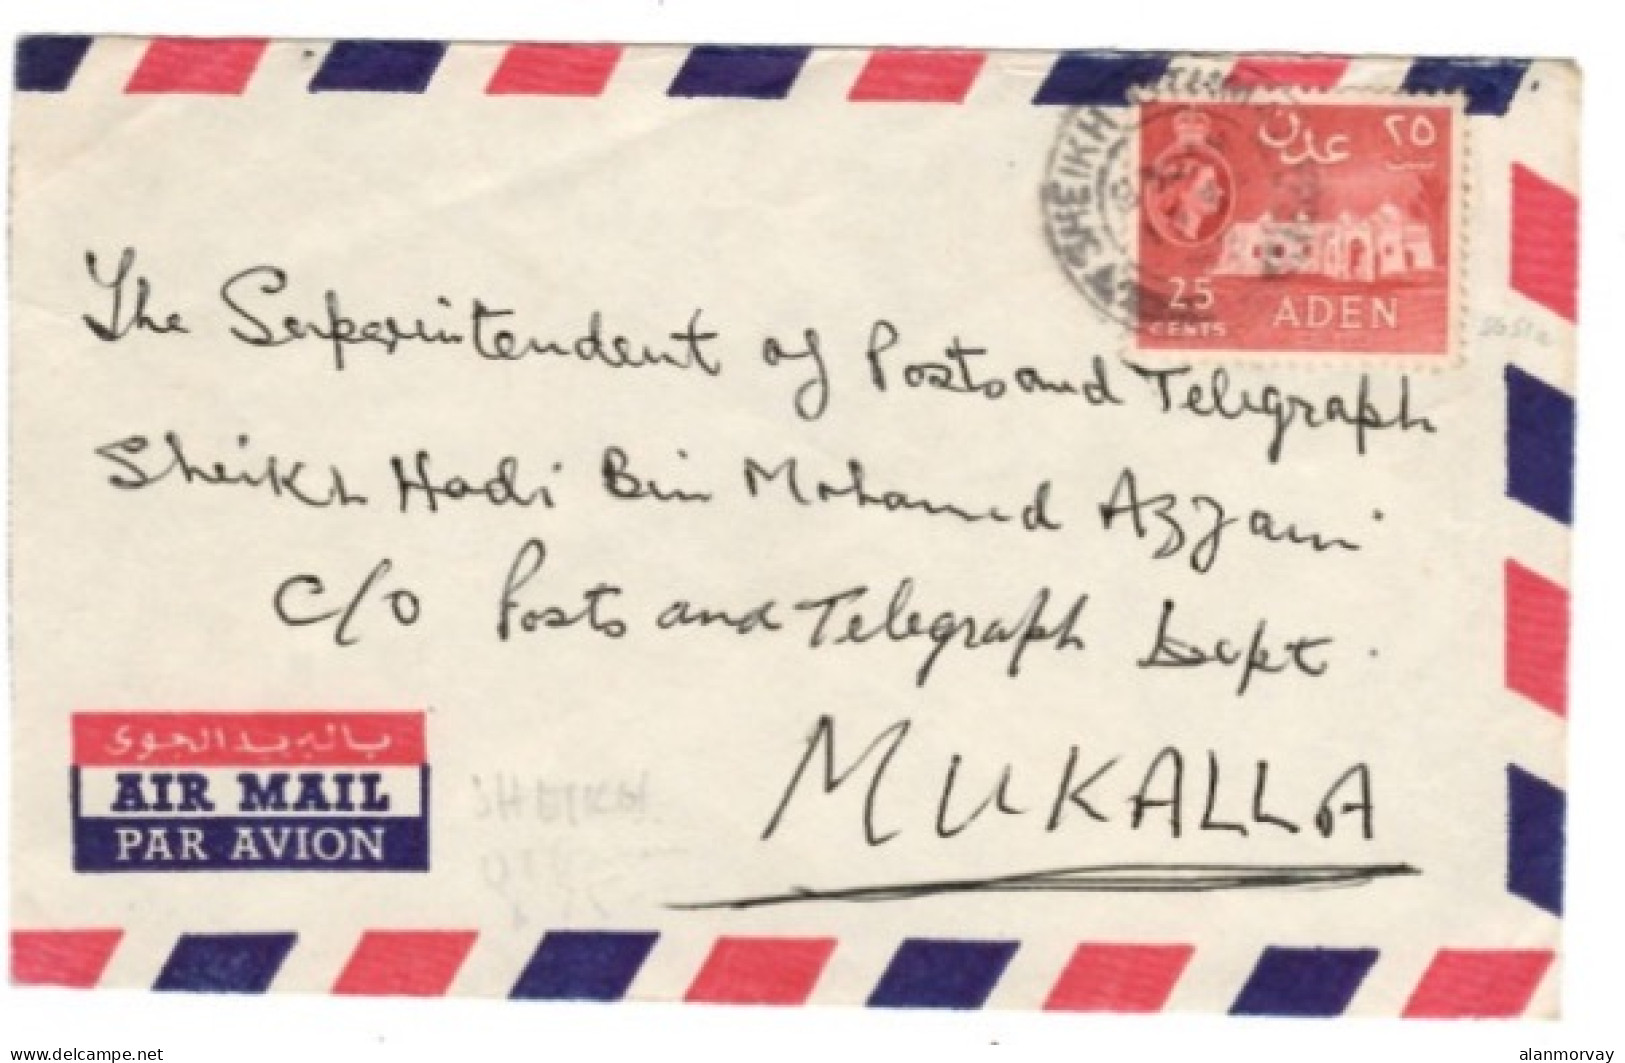 SHEIKH
عدن ٢٥
سنت
25
CENTS
ADEN
The Serperintendent of Posts and Telegraph
Sheikh Hadi Bin Mohamed Azzani
c/o Posts and Telegraph Dept.
MUKALLA
بالبريد الجوى
AIR MAIL
PAR AVION
SHEIKH
delcampe.net
alanmorvay